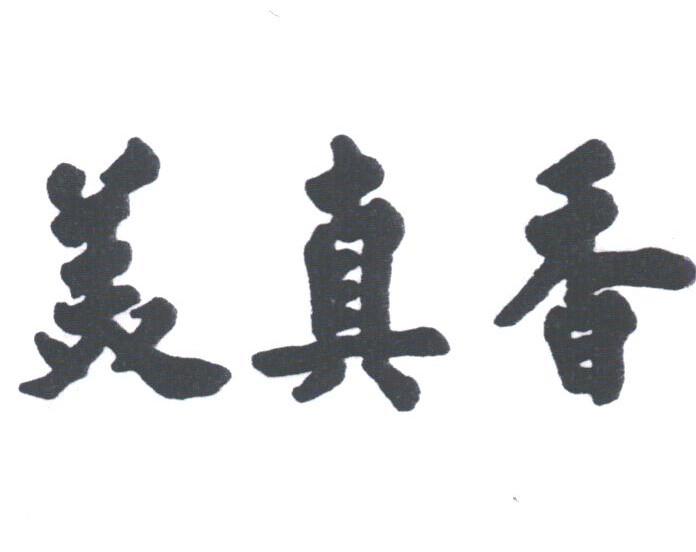 美真香